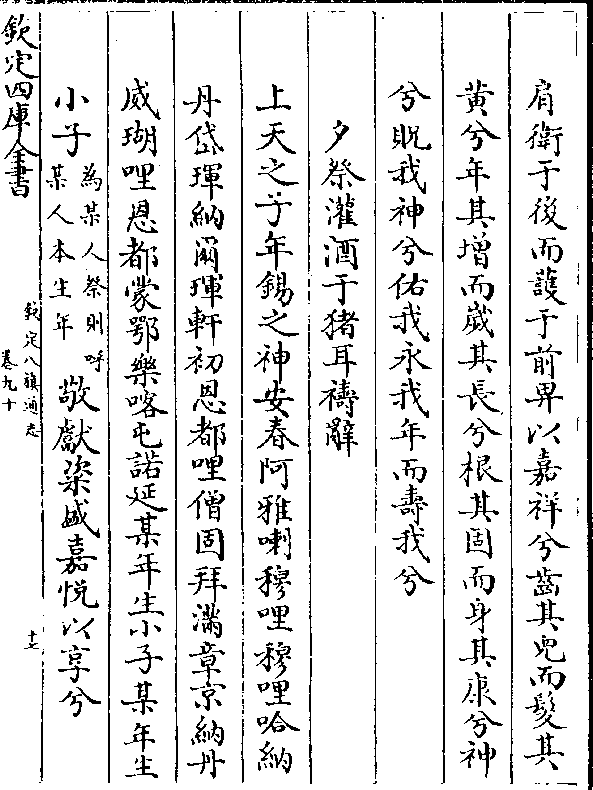 肩衛于後而䕶于前畀以嘉祥兮齒其兒而髮其
黄兮年其增而嵗其長兮根其固而身其康兮神
兮貺我神兮佑我永我年而壽我兮
夕祭灌酒于猪耳禱辭
上天之子年錫之神安春阿雅喇穆哩穆哩哈納
丹岱琿納爾琿軒初恩都哩僧固拜滿章京納丹
威瑚哩恩都蒙鄂樂喀屯諾延某年生小子某年生
小子為某人祭則呼某人本生年敬獻粢盛嘉悦以享兮
欽定四庫全書
欽定八旗通志
卷九十
十七